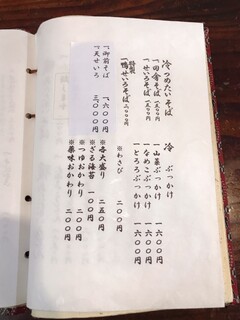 冷 つめたいそば
一、田舎そば 一、三〇〇円
一、せいろそば 一、三〇〇円
特製
一、鴨せいろそば 二、二〇〇円
一、御前そば 一、六〇〇円
一、天せいろ 三、〇〇〇円
冷 ぶっかけ
ぶっかけ 一、六〇〇円
一、なめこぶっかけ 一、六〇〇円
一、とろろぶっかけ 一、六〇〇円
※わさび 二〇〇円
※各大盛り 二五〇円
※ざる海苔 一〇〇円
※つゆおかわり 二〇〇円
※薬味おかわり 二〇〇円